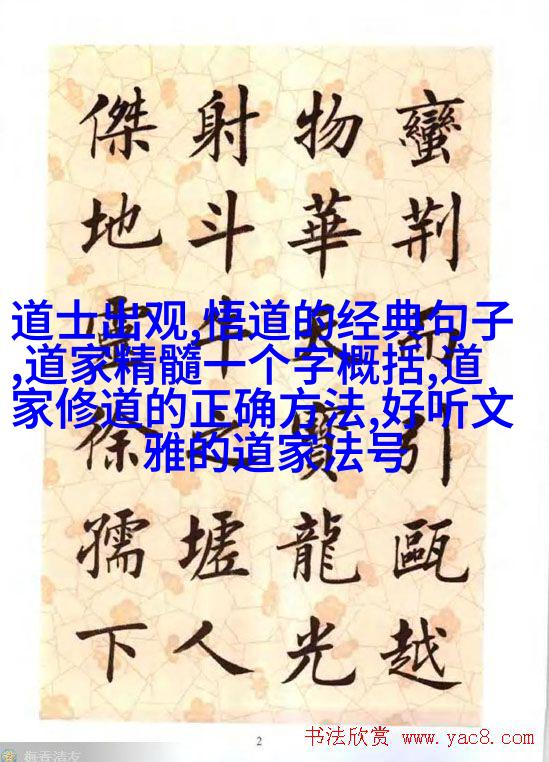 蠻荆而引甌越
物華天寶龍光
射斗牛之墟人
傑地靈徐孺下
道士出观,悟道的经典句子
,道家精髓一个字概括,道
家修道的正确方法,好听文
雅的道家法号
2
书法欣赏 www.yac8.com